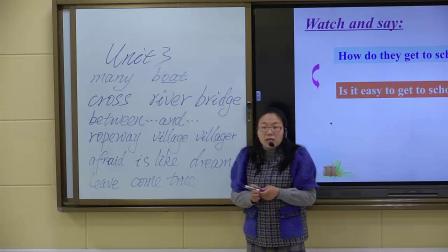 Unit 3
many boat
cross river bridge
between...and...
ropeway village villager
afraid is like dream
leave come true
Watch and say:
How do they get to
Is it easy to get to